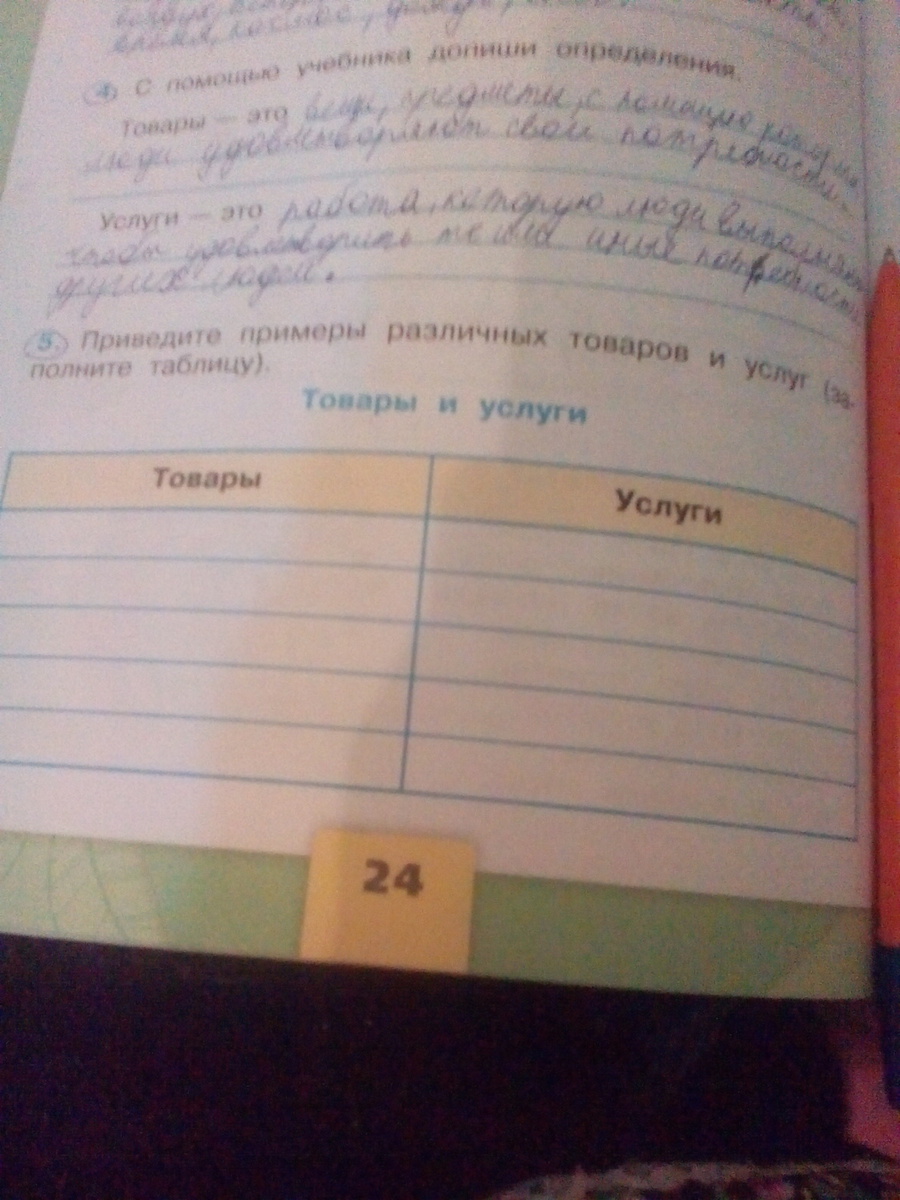 время, космос,
4 С помощью учебника допиши определения.
Товары — это вещи, предметы, с помощью которых
люди удовлетворяют свои потребности.
Услуги — это работа, которую люди выполняют
чтобы удовлетворить те или иные потребности
других людей.
5. Приведите примеры различных товаров и услуг (за-
полните таблицу).
Товары и услуги
Товары
Услуги
24